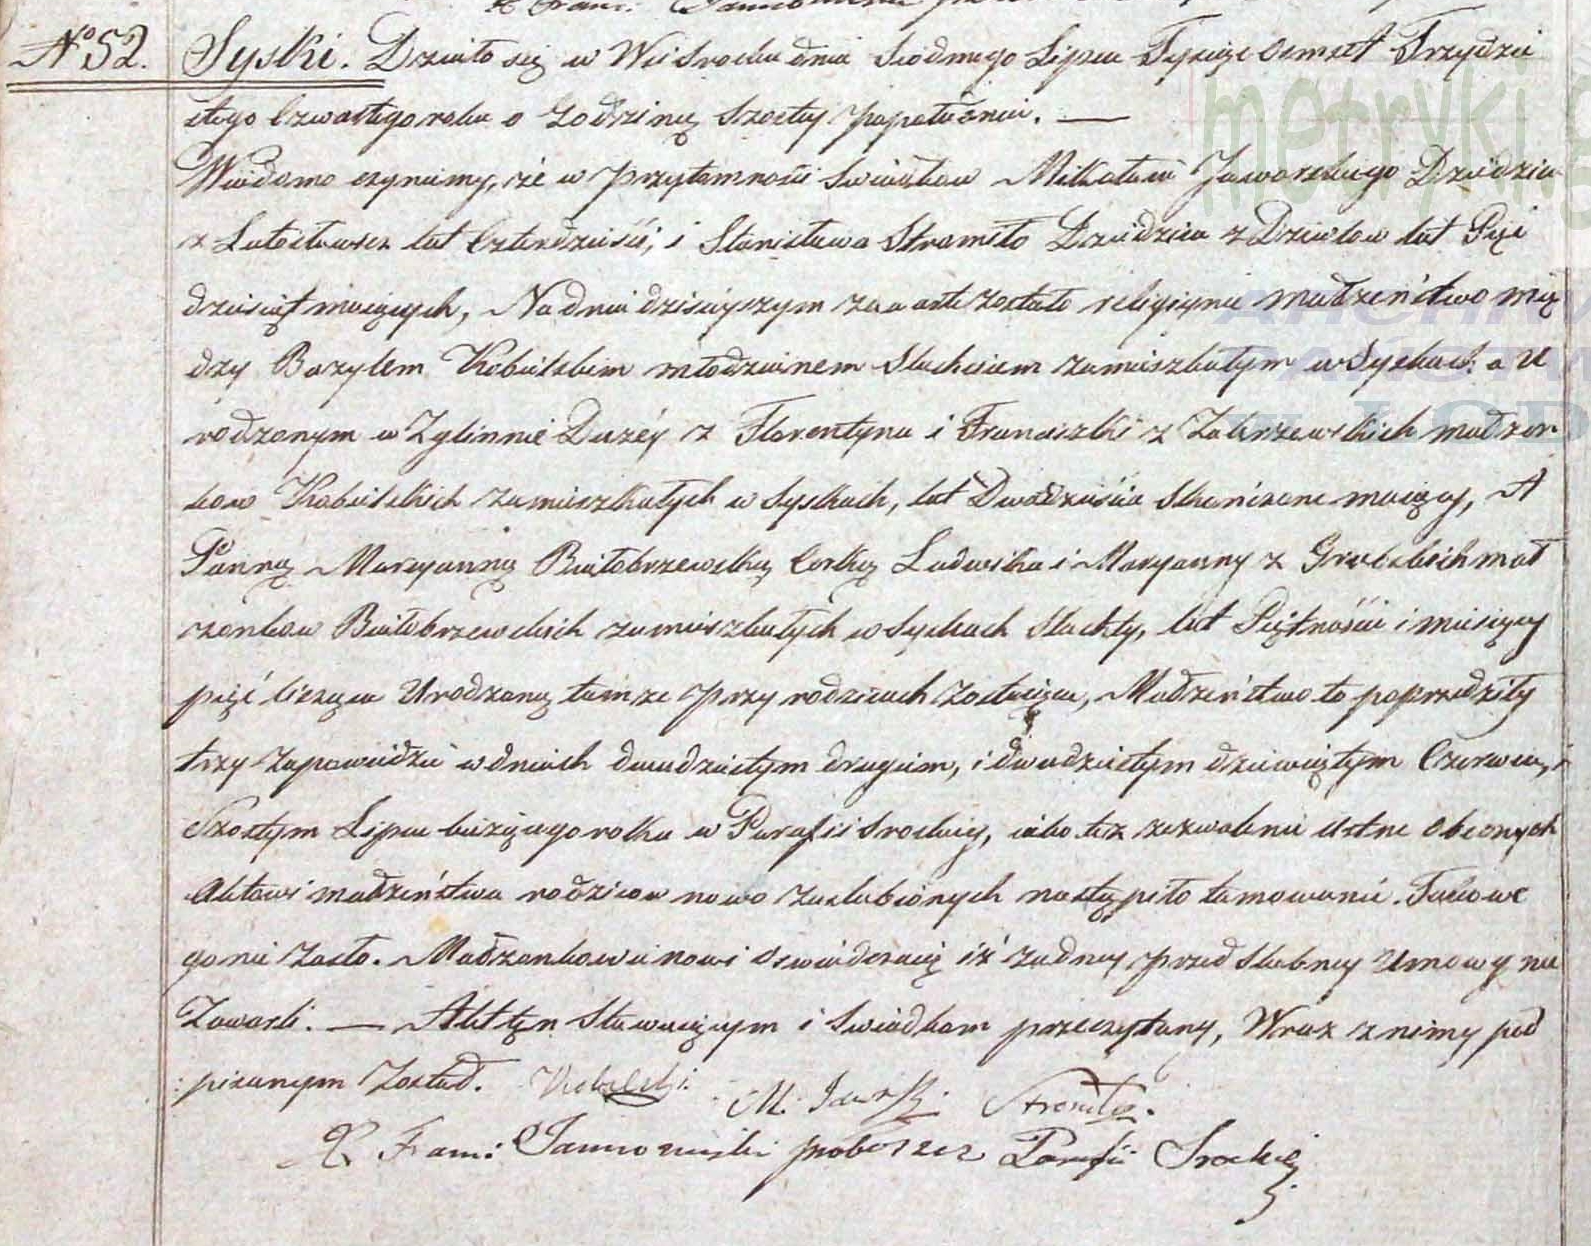 № 52. Syski. Działo się w Wsi Srocku dnia siodmego Lipca Tysiąc osmset Trzydzie
stego Czwartego roku o Godzinie szostey popołudniu. —
Wiadomo czynimy, że w przytomności świadkow Mikołaia Jaworskiego Dziedzica
z Lutosławic lat Czterdzieści, i Stanisława Stromiło Dziedzica z Dziwlow lat Pięć
dziesiąt maiących, Na dniu dzisieyszym zawarte zostało religiyne małżeństwo mię
dzy Bazylem Kobielskim młodzianem Slachcicem zamieszkałym w Syskach a U
rodzonym w Zglinnie Dużéy z Florentyna i Franciszki z Zakrzewskich małżon
kow Kobielskich zamieszkałych w Syskach, lat Dwadzieścia skończone maiący, A
Panną Maryanną Białobrzewską Corką Ludwika i Maryanny z Grabskich mał
żonkow Białobrzewskich zamieszkałych w Syskach Slachty, lat Piętnaście i miesięcy
pięć liczącą Urodzoną tamże przy rodzicach zostaiącą, Małżeństwo to poprzedziły
trzy zapowiedzie w dniach dwudziestym drugim, i dwudziestym dziewiątym Czerwca, i
Szostym Lipca bieżącego roku w Parafii Srockiey, iako też zezwolenie ustne obecnych
Aktowi małżeństwa rodzicow nowo zaslubionych nastąpiło tamowanie. Takowe
go nie zaszło. Małżonkowie nowi oswiadczaią iż żadney przedslubney Umowy nie
Zawarli. — Akt ten stawaiącym i świadkom przeczytany, Wraz z nimy pod
pisanym Został. Kobielski. M. Jaworski Stromiło.
X Fran: proboszcz Parafii Srockiey